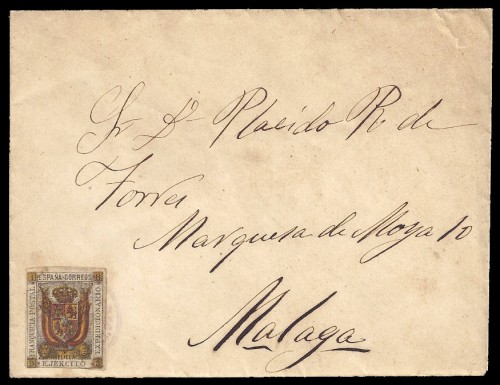 Sr Dn Placido R. de
Torres
Marquesa de Moya 10
Malaga
ESPAÑA-CORREOS
FRANQUICIA POSTAL
EXPEDICIONARIO
EJERCITO